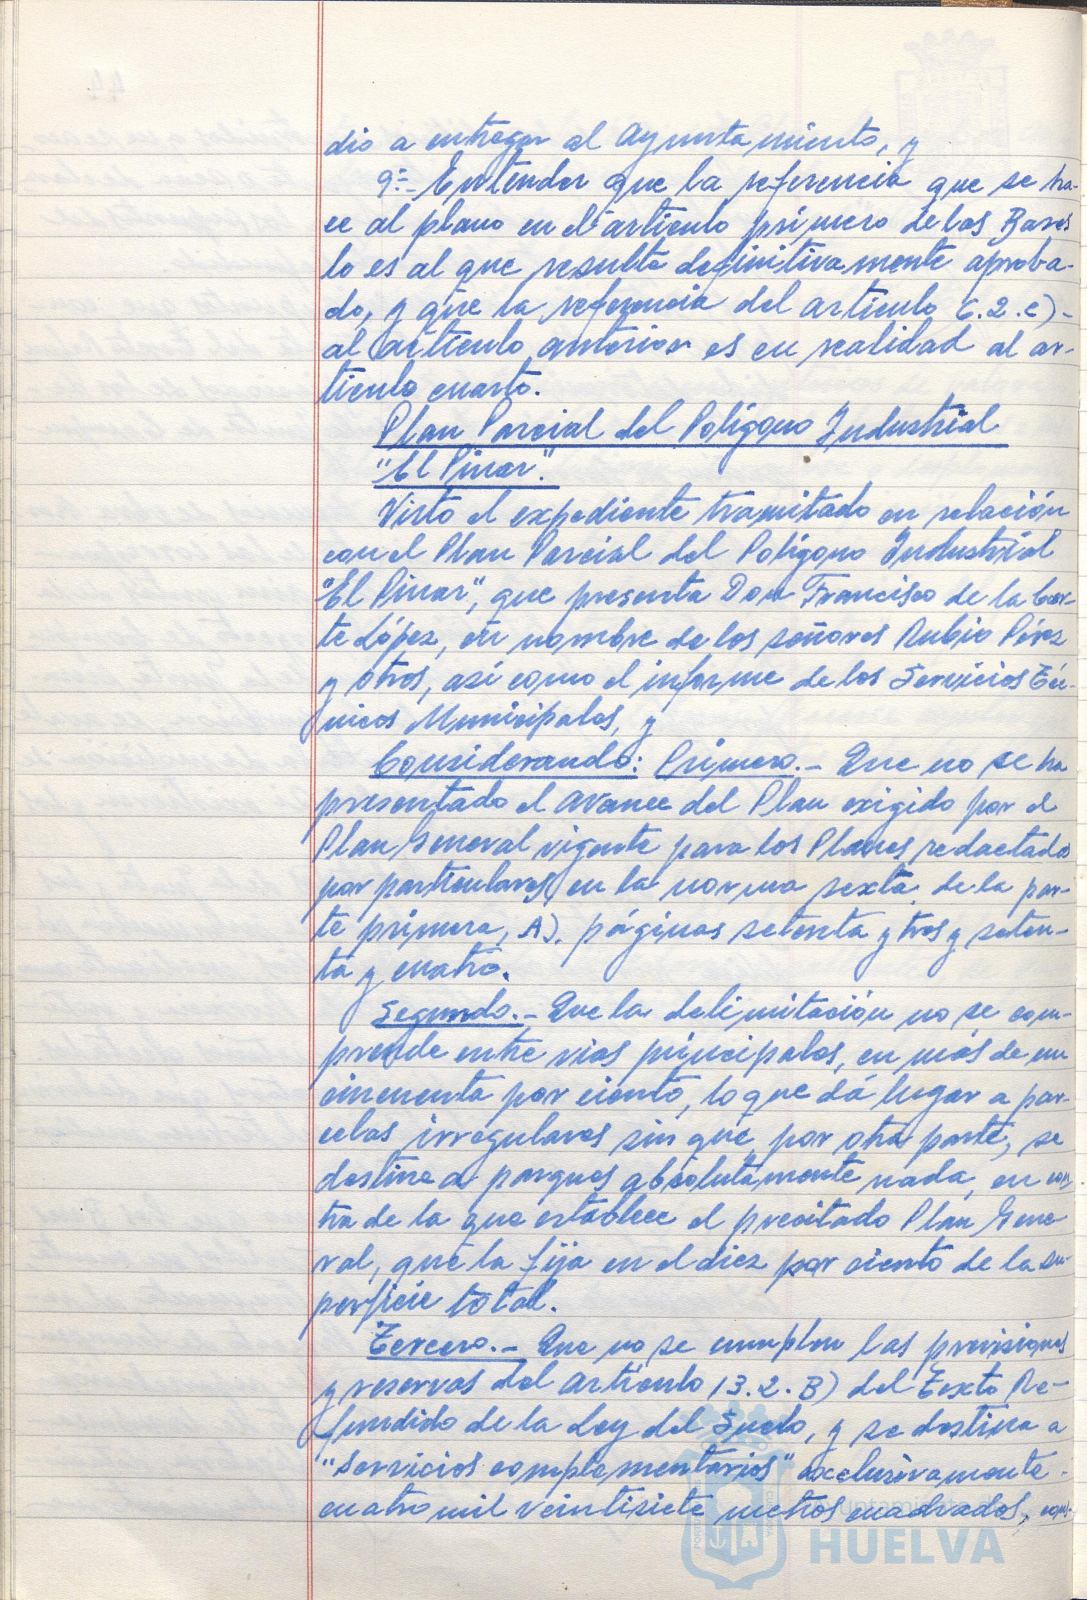 dio a entregar al Ayuntamiento, y
9º.- Entender que la referencia que se ha-
ce al plano en el artículo primero de las Bases
lo es al que resulte definitivamente aproba-
do, y que la referencia del artículo 6.2.c)-
al artículo anterior es en realidad al ar-
tículo cuarto.
Plan Parcial del Polígono Industrial
"El Pinar".
Visto el expediente tramitado en relación
con el Plan Parcial del Polígono Industrial
"El Pinar", que presenta Don Francisco de la Cor-
te López, en nombre de los señores Rubio Pérez
y otros, así como el informe de los Servicios Téc-
nicos Municipales, y
Considerando: Primero.- Que no se ha
presentado el Avance del Plan exigido por el
Plan General vigente para los Planes redactado
por particulares, en la norma sexta, de la par-
te primera, A), páginas setenta y tres y seten-
ta y cuatro.
Segundo.- Que la delimitación no se com-
prende entre vías principales, en más de un
cincuenta por ciento, lo que dá lugar a par-
celas irregulares sin que, por otra parte, se
destine a parques absolutamente nada, en con
tra de la que establece el precitado Plan Gene
ral, que la fija en el diez por ciento de la su-
perficie total.
Tercero.- Que no se cumplen las previsiones
y reservas del artículo 13.2.B) del Texto Re-
fundido de la Ley del Suelo, y se destina a
"Servicios complementarios" exclusivamente-
cuatro mil veintisiete metros cuadrados,
Ayuntamiento de
HUELVA